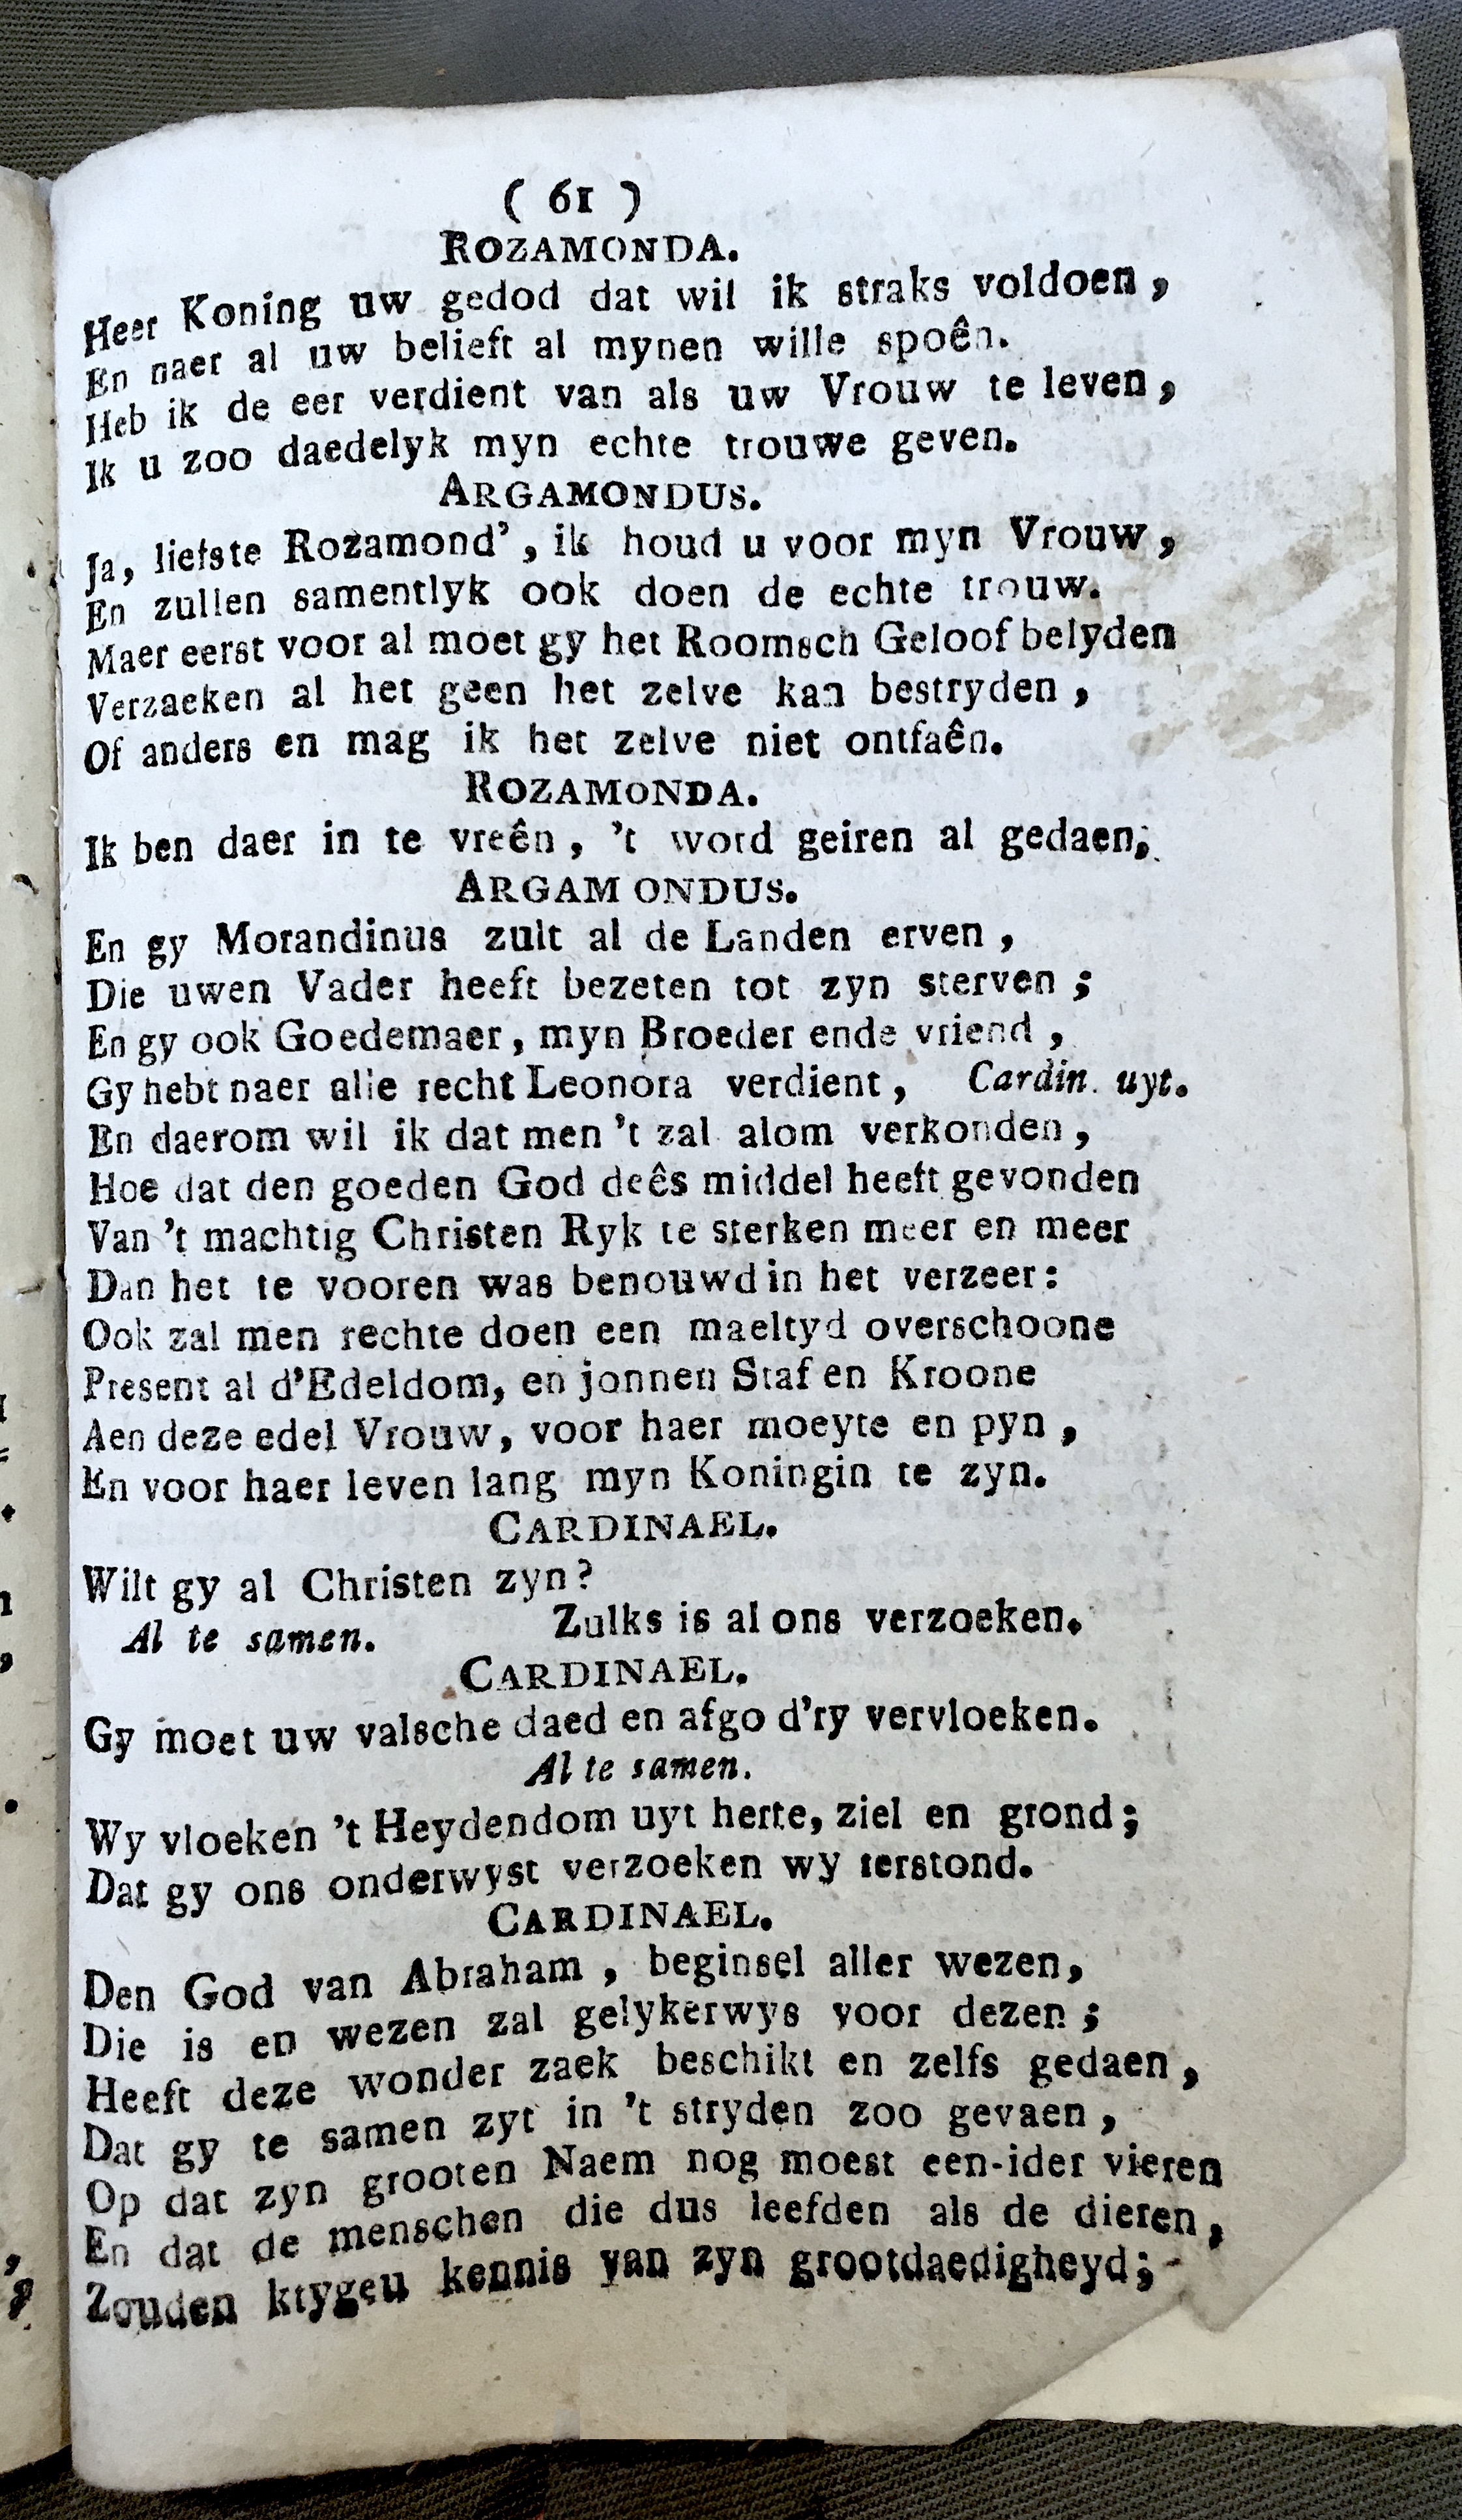 ( 61 )
ROZAMONDA.
Heer Koning uw gedod dat wil ik straks voldoen,
En naer al uw belieft al mynen wille spoên.
Heb ik de eer verdient van als uw Vrouw te leven,
Ik u zoo daedelyk myn echte trouwe geven.
ARGAMONDUS.
Ja, liefste Rozamond', ik houd u voor myn Vrouw,
En zullen samentlyk ook doen de echte trouw.
Maer eerst voor al moet gy het Roomsch Geloof belyden
Verzaeken al het geen het zelve kan bestryden,
Of anders en mag ik het zelve niet ontfaên.
ROZAMONDA.
Ik ben daer in te vreên, 't word geiren al gedaen;
ARGAMONDUS.
En gy Morandinus zult al de Landen erven,
Die uwen Vader heeft bezeten tot zyn sterven;
En gy ook Goedemaer, myn Broeder ende vriend,
Gy hebt naer alle recht Leonora verdient, Cardin. uyt.
En daerom wil ik dat men 't zal alom verkonden,
Hoe dat den goeden God deês middel heeft gevonden
Van 't machtig Christen Ryk te sterken meer en meer
Dan het te vooren was benouwd in het verzeer:
Ook zal men rechte doen een maeltyd overschoone
Present al d'Edeldom, en jonnen Staf en Kroone
Aen deze edel Vrouw, voor haer moeyte en pyn,
En voor haer leven lang myn Koningin te zyn.
CARDINAEL.
Wilt gy al Christen zyn?
Al te samen. Zulks is al ons verzoeken.
CARDINAEL.
Gy moet uw valsche daed en afgo d'ry vervloeken.
Al te samen.
Wy vloeken 't Heydendom uyt herte, ziel en grond;
Dat gy ons onderwyst verzoeken wy terstond.
CARDINAEL.
Den God van Abraham, beginsel aller wezen,
Die is en wezen zal gelykerwys voor dezen;
Heeft deze wonder zaek beschikt en zelfs gedaen,
Dat gy te samen zyt in 't stryden zoo gevaen,
Op dat zyn grooten Naem nog moest een-ider vieren
En dat de menschen die dus leefden als de dieren,
Zouden krygeu kennis van zyn grootdaedigheyd;